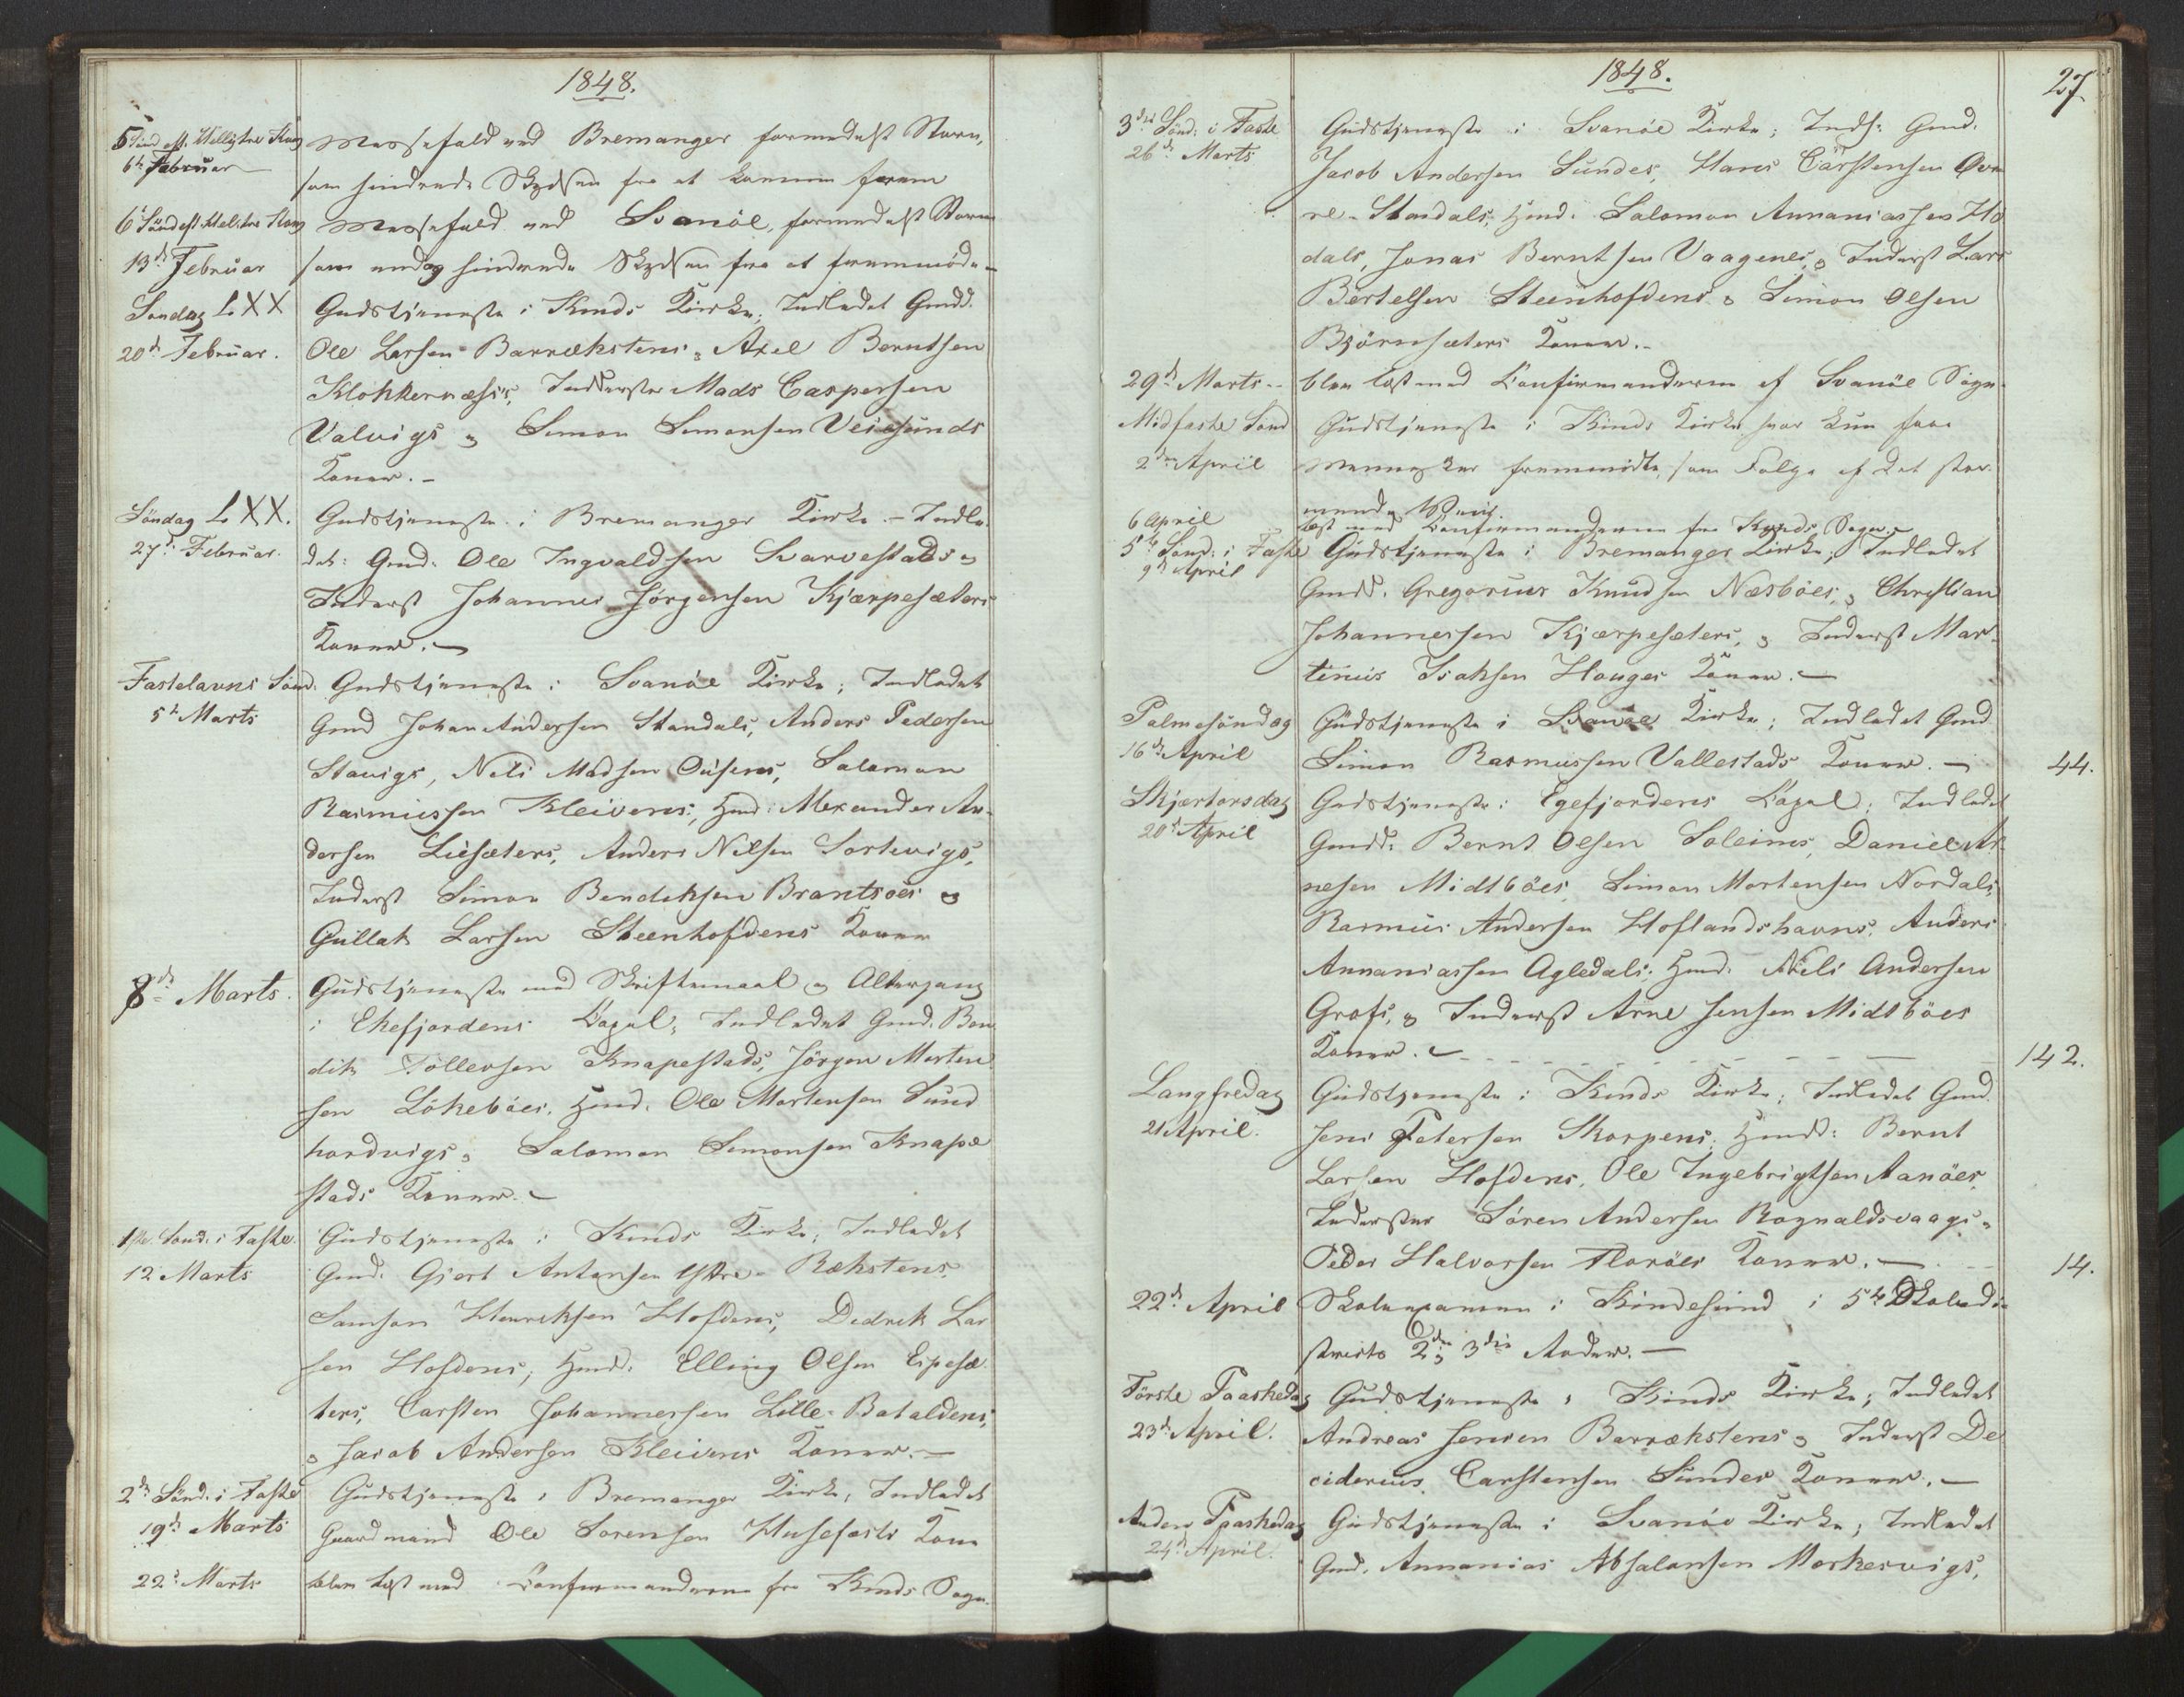 1848.
5 Sønd. eft. Hellig tre Kong Messefald ved Bremanger formedelst Storm,
6te Februar
som hindrede Skydsen fra at komme frem
6te Sønd eft. Hel. tre Kong Messefald ved Svanöe, formedelst Storm
13de Februar som endog hindrede Skydsen fra at fremmöde
Søndag L XX Gudstjeneste i Kinds Kirke; Indledet Gmdd.
20de Februar. Ole Larsen Barrækstens, Axel Berntsen
Klokkernæss, Inderster Mads Caspersen
Valvigs og Simon Simonsen Veiesunds
Koner. –
Söndag L XX. Gudstjeneste i Bremanger Kirke. – Indle
27de Februar. det: Gmd. Ole Ingvaldsen Svarvestads og
Inderst Johannes Jörgensen Kjærpesæters
Koner. –
Fastelavns Sönd. Gudstjeneste i Svanöe Kirke; Indledet
5te Marts Gmd Johan Andersen Standals, Anders Pedersen
Stavigs, Nels Madsen Ousens, Salamon
Rasmussen Kleivens, Hmd: Alexander An-
dersen Liesæters, Anders Nilsen Sortevigs,
Inderst Simon Bendiksen Brantsoes og
Gullak Larsen Steenhofdens Koner
8de Marts. Gudstjeneste med Skriftemaal og Altergang
i Ekefjordens Capel; Indledet Gmd. Ben
dik Tollevsen Knapestads, Jörgen Morten
sen Lökeböes, Hmd. Ole Mortensen Sund
hordvigs, Salamon Simonsen Knape
stads Koner. –
1ste Sond. i Faste. Gudstjeneste i Kinds Kirke; Indledet
12 Marts Gmd. Gjert Antonsen Ytre-Rækstens,
Samson Henriksen Hofdens, Didrik Lar
sen Hofdens, Hmdd. Elling Olsen Espesæ
ters, Carsten Johannessen Lille-Bataldens,
og Jacob Andersen Kleivens Koner. –
2de Sönd. i Faste Gudstjeneste i Bremanger Kirke, Indledet
19de Marts Gaardmand Ole Sorensen Husefests Kone
22de Marts blev læst med Confirmanderne fra Kinds Sogn.
1848. 27
3die Sönd: i Faste Gudstjeneste i Svanöe Kirke; Indl: Gmd.
26de Marts Jacob Andersen Sundes, Hans Carstensen Ov
re-Standals, Hmd: Salomon Annaniassen Ho
dals, Jonas Berntsen Vaagenes, og Inderst Lars
Bertelsen Steenhofdens og Simon Olsen
Björnsæters Koner. –
29de Marts – blev læst med Confirmanderne af Svanöe Sogn
Midfaste Sond Gudstjeneste i Kinds Kirke hvor kun faae
2den April Mennesker fremmödte, som Følge af det stor
mende Veir.
6 April læst med Confirmanderne fra Kinds Sogn. –
5te Sond: i Faste Gudstjeneste i Bremanger Kirke; Indledet
9de April
Gmdd. Gregorius Knudsen Næsböes, og Christian
Johannessen Kjærpesæters, og Inderst Mar-
tinus Isaksen Hauges Koner. –
Palmesöndag Gudstjeneste i Svanöe Kirke; Indledet Gmd
16de April Simon Rasmussen Vallestads Koner. – 44.
Skjærtorsdag Gudstjeneste i Egefjordens Capel; Indledet
20de April Gmdd. Bernt Olsen Soleims, Daniel Ar
nesen Midtböes, Simon Mortensen Nordals,
Rasmus Andersen Hoflandshavns, Anders
Annaniassen Agledals, Hmd. Nels Andersen
Grofs, og Inderst Arne Jensen Midtböes
Koner. – 142.
Langfredag Gudstjeneste i Kinds Kirke; Indledet Gmd
21 April. Jens Petersen Skorpens, Hmdd: Bernt
Larsen Hofdens, Ole Ingebrigtsen Aanöes,
Inderster Sören Andersen Rognaldsvaags,
Peder Halvorsen Floröes Koner. – 14.
22de April Skoleexamen i Kindesund i 5te Skoledi
stricts 2den og 3die Roder. –
Förste Paaskedag Gudstjeneste i Kinds Kirke; Indledet
23de April. Andreas Jensen Barrækstens og Inderst De
ciderius Carstensen Sundes Koner. –
Anden Paaskedag Gudstjeneste i Svanöe Kirke; Indledet
24de April. Gmd. Annanias Absalonsen Morkesvigs,